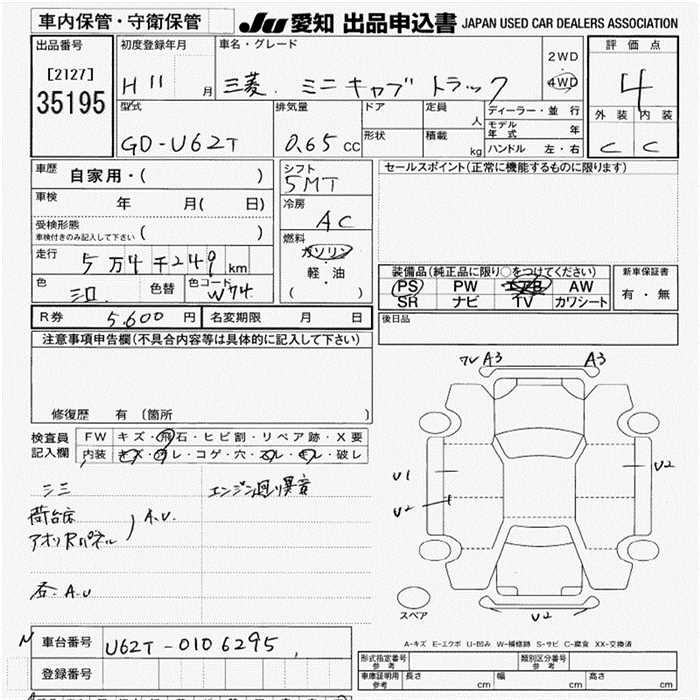 車内保管・守衛保管
JU 愛知 出品申込書 JAPAN USED CAR DEALERS ASSOCIATION
出品番号
[2127]
35195
初度登録年月
H11 月
車名・グレード
三菱. ミニキャブ トラック
2WD
・
4WD
評価点
4
外装 内装
C C
型式
GD-U62T
排気量
0.65 cc
ドア
形状
定員
人
積載
kg
ディーラー・並行
モデル年式 年
ハンドル 左・右
車歴 自家用・( )
車検 年 月( 日)
受検形態
車検付きのみ記入して下さい ( )
走行 5万4千249 km
色 色替 色コード W74
シフト
5MT
冷房
AC
燃料
ガソリン
・
軽・油
( )
セールスポイント(正常に機能するものに限ります)
装備品(純正品に限り○をつけてください)
PS PW エアB AW
SR ナビ TV カワシート
新車保証書
有・無
後日品
R券 5.600 円 名変期限 月 日
注意事項申告欄(不具合内容等は具体的に記入して下さい)
修復歴 有 〔箇所 〕
検査員
記入欄
FW キズ・飛石・ヒビ割・リペア跡・X要
内装 キズ・汚レ・コゲ・穴・スレ・キレ・破レ
シミ
エンジン廻り異音
荷台床
アオリRパネル
A.U.
A.U
A3
A3
U1
U2
U2
U2
スペア
A-キズ E-エクボ U-凹み W-補修跡 S-サビ C-腐食 XX-交換済
車台番号 U62T-0106295
登録番号
形式指定番号
参考
類別区分番号
参考
車庫証明用
参考
長さ cm 幅 cm 高さ cm